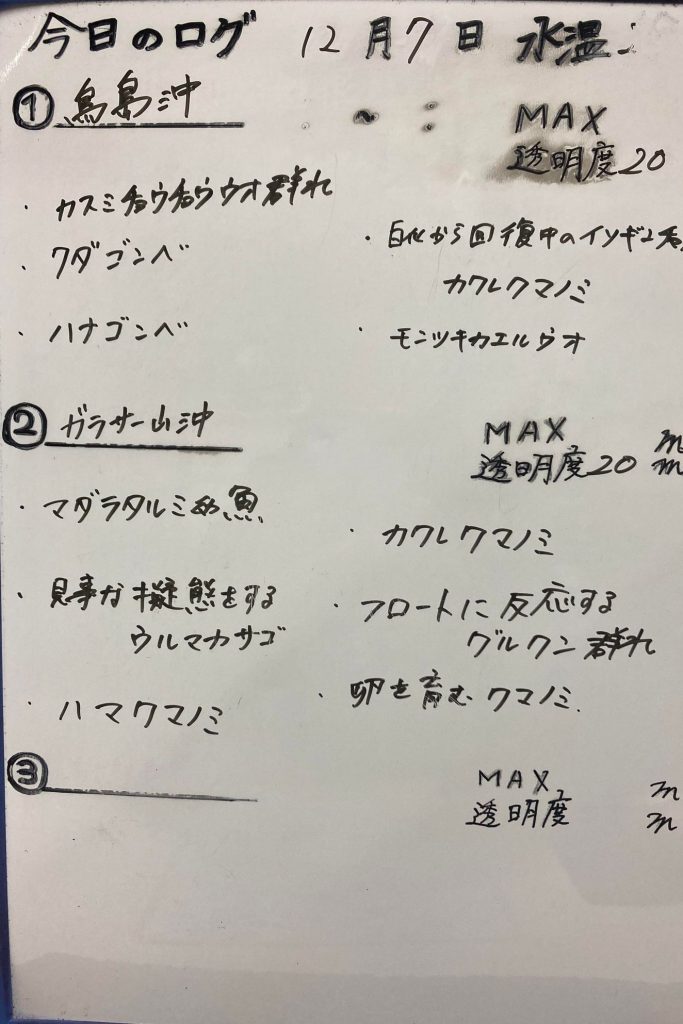 今日のログ 12月7日 水温:
① 鳥島沖 ~ :
MAX
透明度20
・カスミチョウチョウウオ群れ
・クダゴンベ
・ハナゴンベ
・白化から回復中のイソギンチャ
カクレクマノミ
・モンツキカエルウオ
② ガラサー山沖
MAX m
透明度20 m
・マダラタルミ幼魚
・見事な擬態をする
ウルマカサゴ
・ハマクマノミ
・カクレクマノミ
・フロートに反応する
グルクン群れ
・卵を育むクマノミ.
③
MAX m
透明度 m